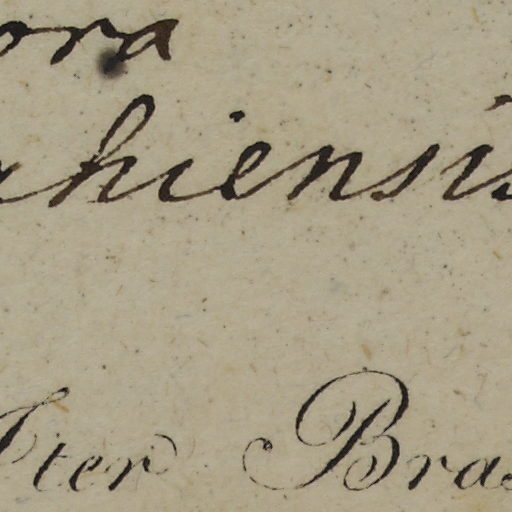 ora
ahiensis
Iter Bras